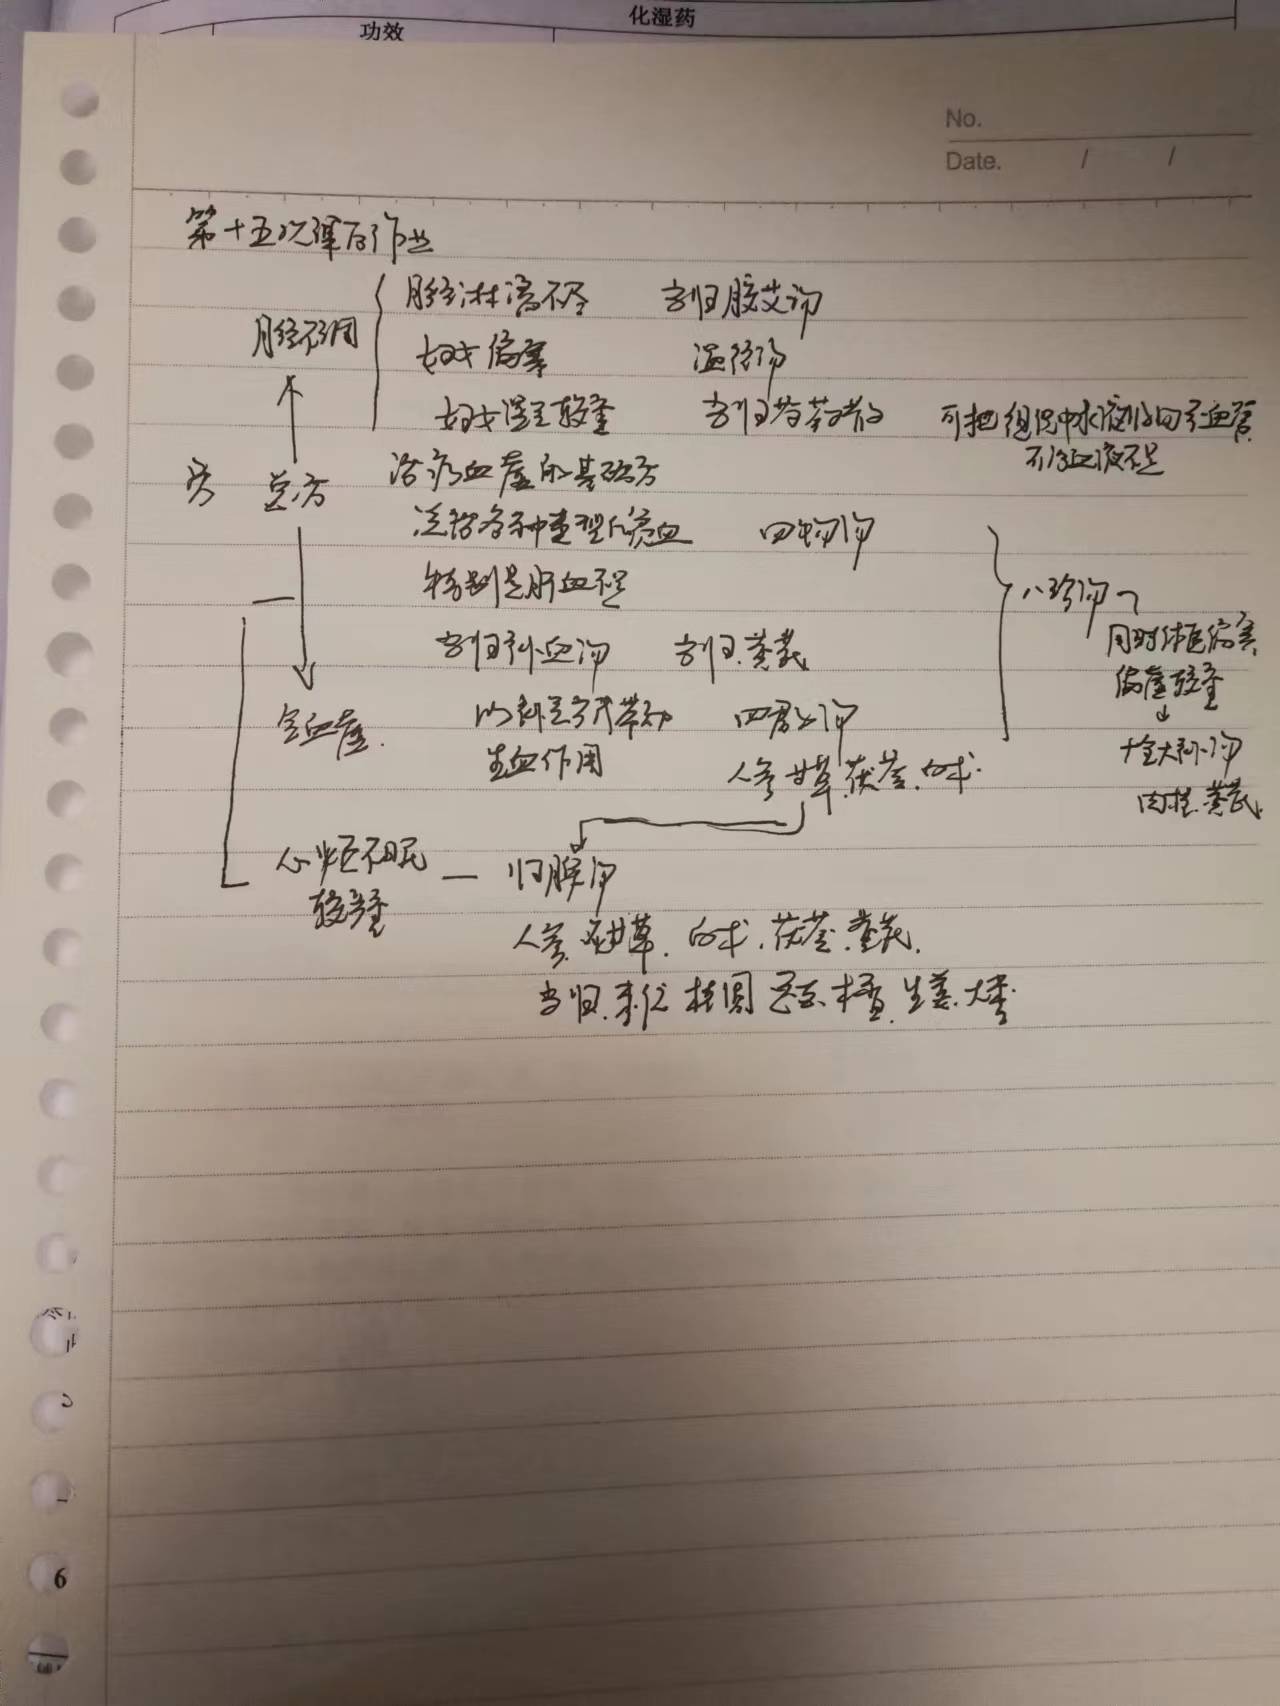 化湿药
功效
No.
Date. / /
第十五次课后作业
月经淋漓不尽 当归胶艾汤
月经不调
妇女偏寒 温经汤
妇女湿重较重 当归芍药散 可把组织中水液 血管
不仅血液不足
总方 治疗血虚的基础方
活 各种 贫血 四物汤
特别是肝血不足 八珍汤
当归补血汤 当归.黄芪 同时体 偏寒
偏虚较重
全血虚. 以补 带动 四君子汤
十全大补汤
生血作用 人参 甘草.茯苓.白术.
肉桂.黄芪
心悸不眠 — 归脾汤
较重
人参.炙甘草.白术.茯苓.黄芪.
当归. 桂圆 木香.生姜.大枣.
6